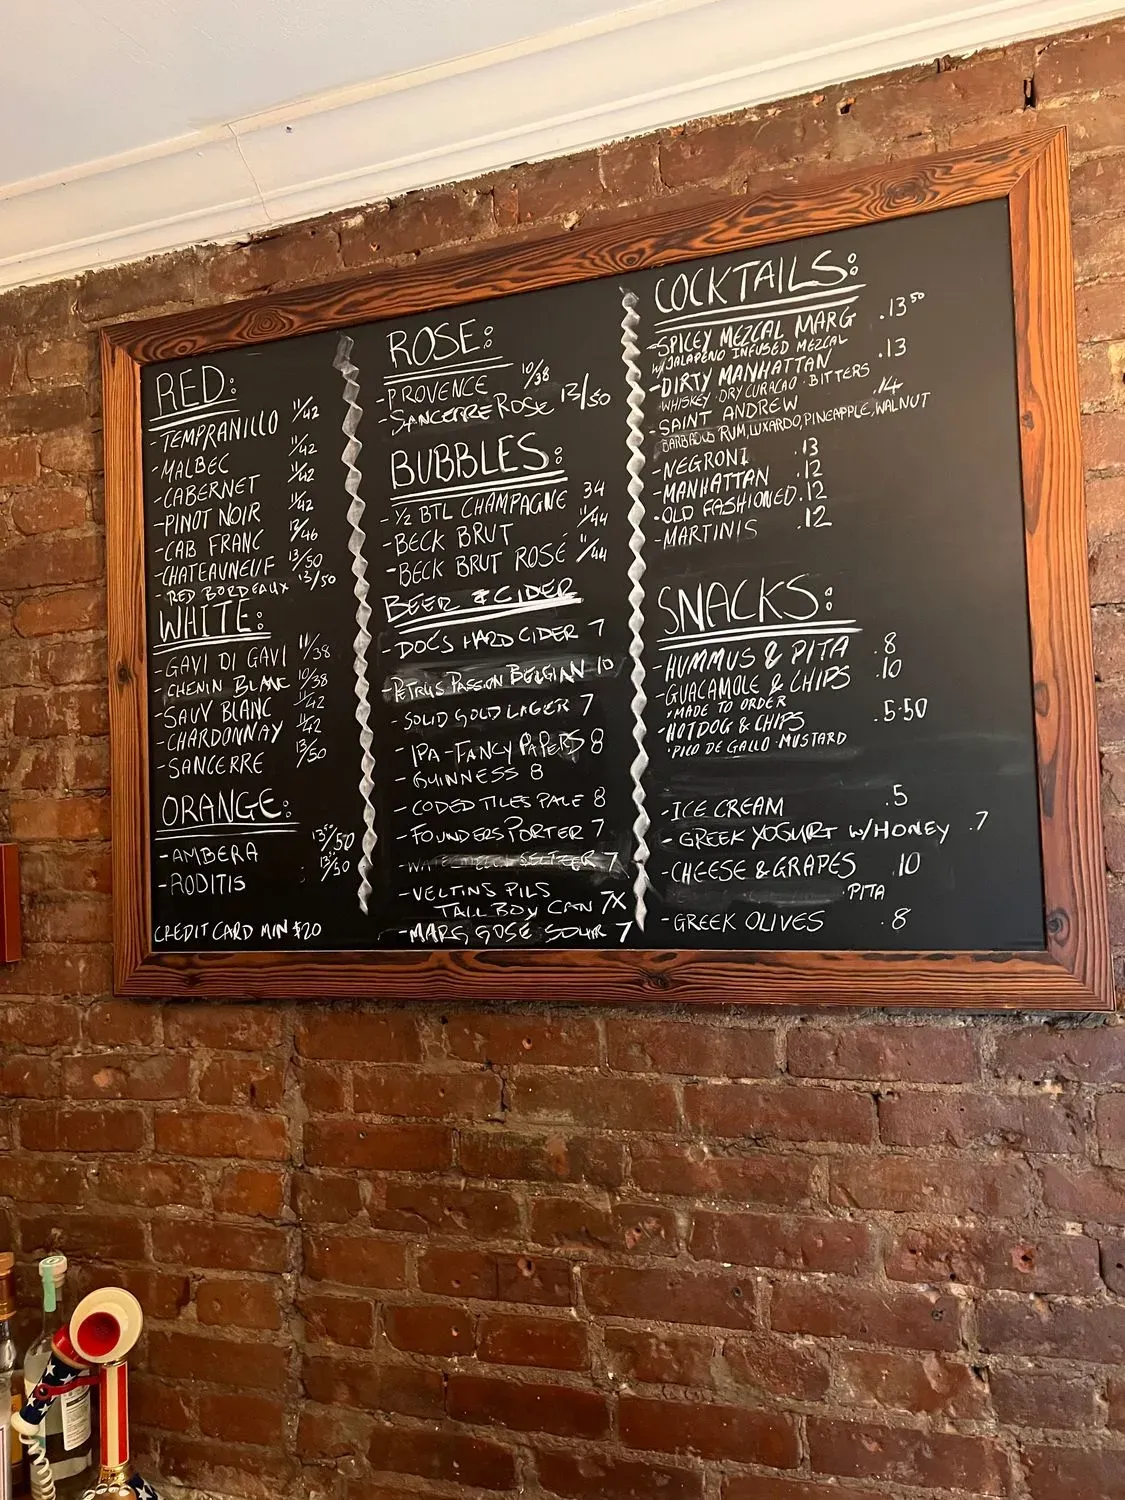 RED:
-TEMPRANILLO 11/42
-MALBEC 11/42
-CABERNET 11/42
-PINOT NOIR 11/42
-CAB FRANC 12/46
-CHATEAUNEUF 13/50
-RED BORDEAUX 13/50
WHITE:
-GAVI DI GAVI 11/38
-CHENIN BLANC 10/38
-SAUV BLANC 11/42
-CHARDONNAY 11/42
-SANCERRE 13/50
ORANGE:
-AMBERA 13⁵⁰/50
-RODITIS 13⁵⁰/50
CREDIT CARD MIN $20
ROSE:
-PROVENCE 10/38
-SANCERRE ROSE 13/50
BUBBLES:
-½ BTL CHAMPAGNE 34
-BECK BRUT 11/44
-BECK BRUT ROSÉ 11/44
BEER & CIDER
-DOC'S HARD CIDER 7
-PETRUS PASSION BELGIAN 10
-SOLID GOLD LAGER 7
-IPA-FANCY PAPERS 8
-GUINNESS 8
-CODED TILES PALE 8
-FOUNDERS PORTER 7
SELTZER 7
-VELTINS PILS
TALL BOY CAN 7X
-MARG GOSÉ SOUR 7
COCKTAILS:
-SPICEY MEZCAL MARG .13⁵⁰
W/JALAPENO INFUSED MEZCAL
-DIRTY MANHATTAN .13
WHISKEY·DRY CURACAO·BITTERS
-SAINT ANDREW .14
BARBADOS RUM, LUXARDO, PINEAPPLE, WALNUT
-NEGRONI .13
-MANHATTAN .12
-OLD FASHIONED .12
-MARTINIS .12
SNACKS:
-HUMMUS & PITA .8
-GUACAMOLE & CHIPS .10
·MADE TO ORDER
-HOTDOG & CHIPS .5.50
·PICO DE GALLO·MUSTARD
-ICE CREAM .5
-GREEK YOGURT W/HONEY .7
-CHEESE & GRAPES .10
·PITA
-GREEK OLIVES .8